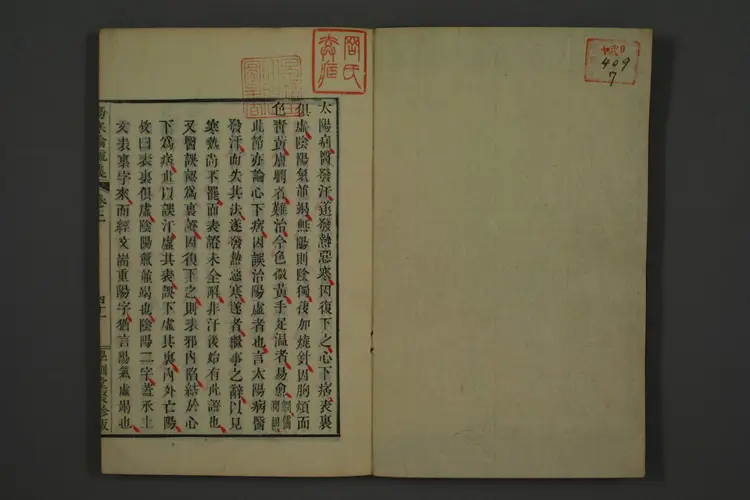 太陽病醫發汗遂發熱惡寒因復下之心下痞表裏
俱虛陰陽氣並竭無陽則陰獨復加燒鍼因胸煩面
色青黃膚瞤者難治今色微黃手足溫者易愈
此節亦論心下痞因誤治陽虛者也言太陽病醫
發汗而失其法遂發熱惡寒遂者繼事之辭以見
寒熱尚不罷而表證未全解非汗後始有此證也
又醫誤認爲裏證因復下之則表邪內陷結於心
下爲痞此以誤汗虛其表誤下虛其裏內外亡陽
故曰表裏俱虛陰陽氣並竭也陰陽二字蓋承上
文表裏字來而經文嵩重陽字猶言陽氣虛竭也
傷寒論
卷二
四十一
409
7